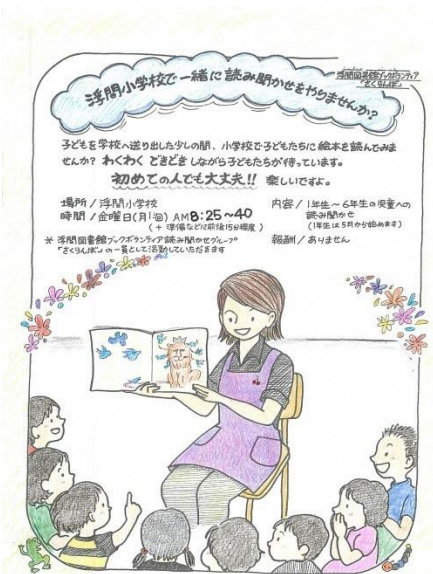 浮間図書館ブックボランティア
"さくらんぼ"
浮間小学校で一緒に読み聞かせをやりませんか?
子どもを学校へ送り出した少しの間、小学校で子どもたちに絵本を読んでみま
せんか? わくわく どきどき しながら子どもたちが待っています。
初めての人でも大丈夫!! 楽しいですよ。
場所/浮間小学校
時間/金曜日(月1回) AM8:25~40
(+ 準備などに前後15分程度)
* 浮間図書館ブックボランティア読み聞かせグループ
"さくらんぼ"の一員として活動していただきます
内容/1年生~6年生の児童への
読み聞かせ
(1年生は5月から始めます)
報酬/ありません